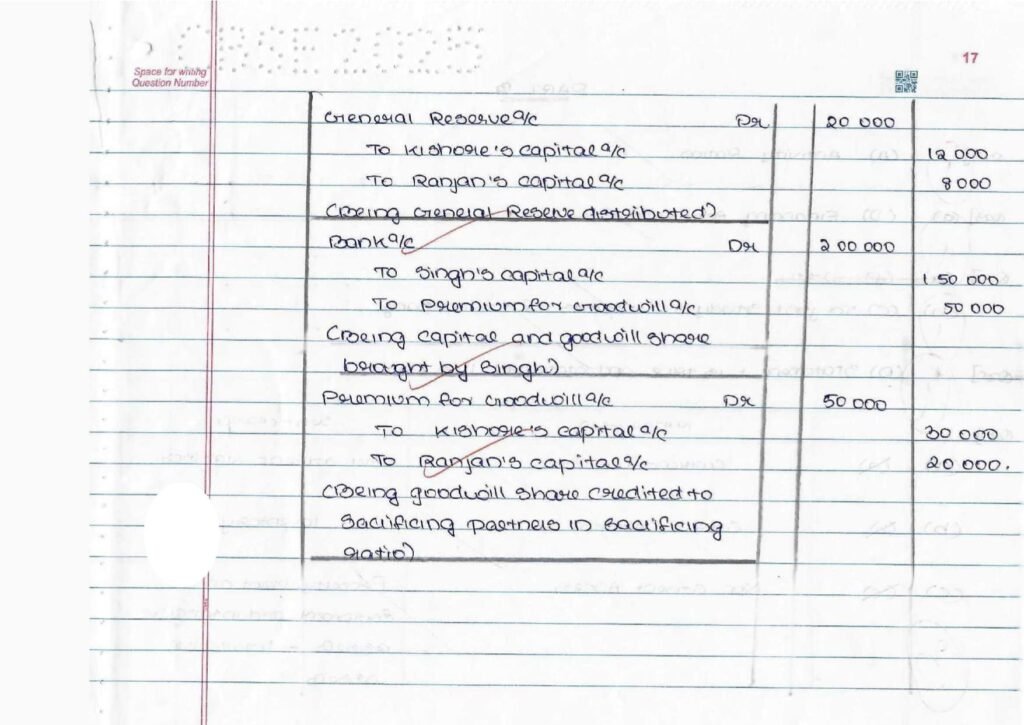 CBSE 2025
17
Space for writing
Question Number
General Reserve a/c Dr 20 000
To Kishore's capital a/c 12 000
To Ranjan's capital a/c 8 000
(Being General Reserve distributed)
Bank a/c Dr 2 00 000
To Singh's capital a/c 1 50 000
To Premium for Goodwill a/c 50 000
(Being capital and goodwill share
brought by Singh)
Premium for Goodwill a/c Dr 50 000
To Kishore's capital a/c 30 000
To Ranjan's capital a/c 20 000.
(Being goodwill share credited to
sacrificing partners in sacrificing
ratio)